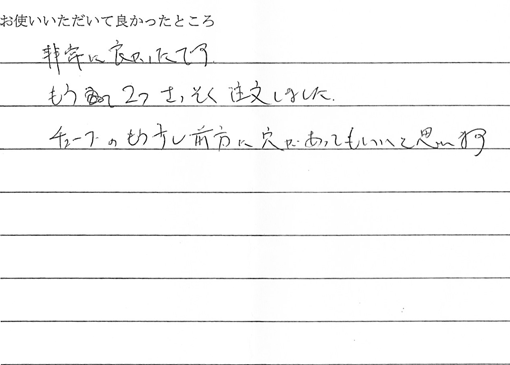 お使いいただいて良かったところ
非常に良かったです
もう 2つ さっそく注文しました.
チューブのもう少し前方に穴があってもいいと思います